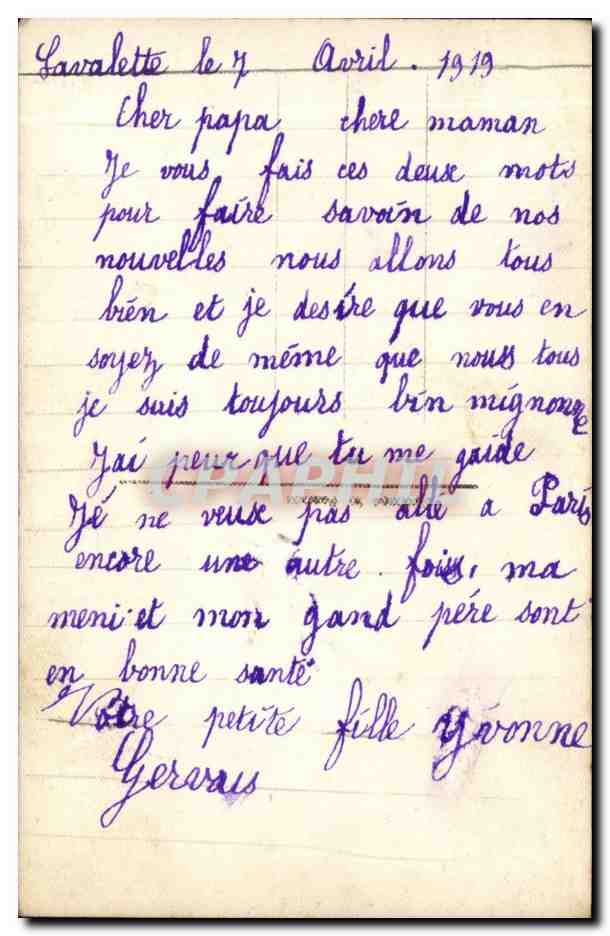 Lavalette le 7 Avril. 1919
Cher papa chere maman
Je vous fais ces deuse mots
pour faire savoin de nos
nouvelles nous allons tous
bién et je desire que vous en
soyez de méme que nous tous
je suis toujours bin mignonne
J'ai peur que tu me gaide
Jé ne veuse pas alie a Paris
encore une autre fois, ma
meni et mon gand pére sont
en bonne santé
Votre petite fille Yvonne
Gervais
CPAPHIL